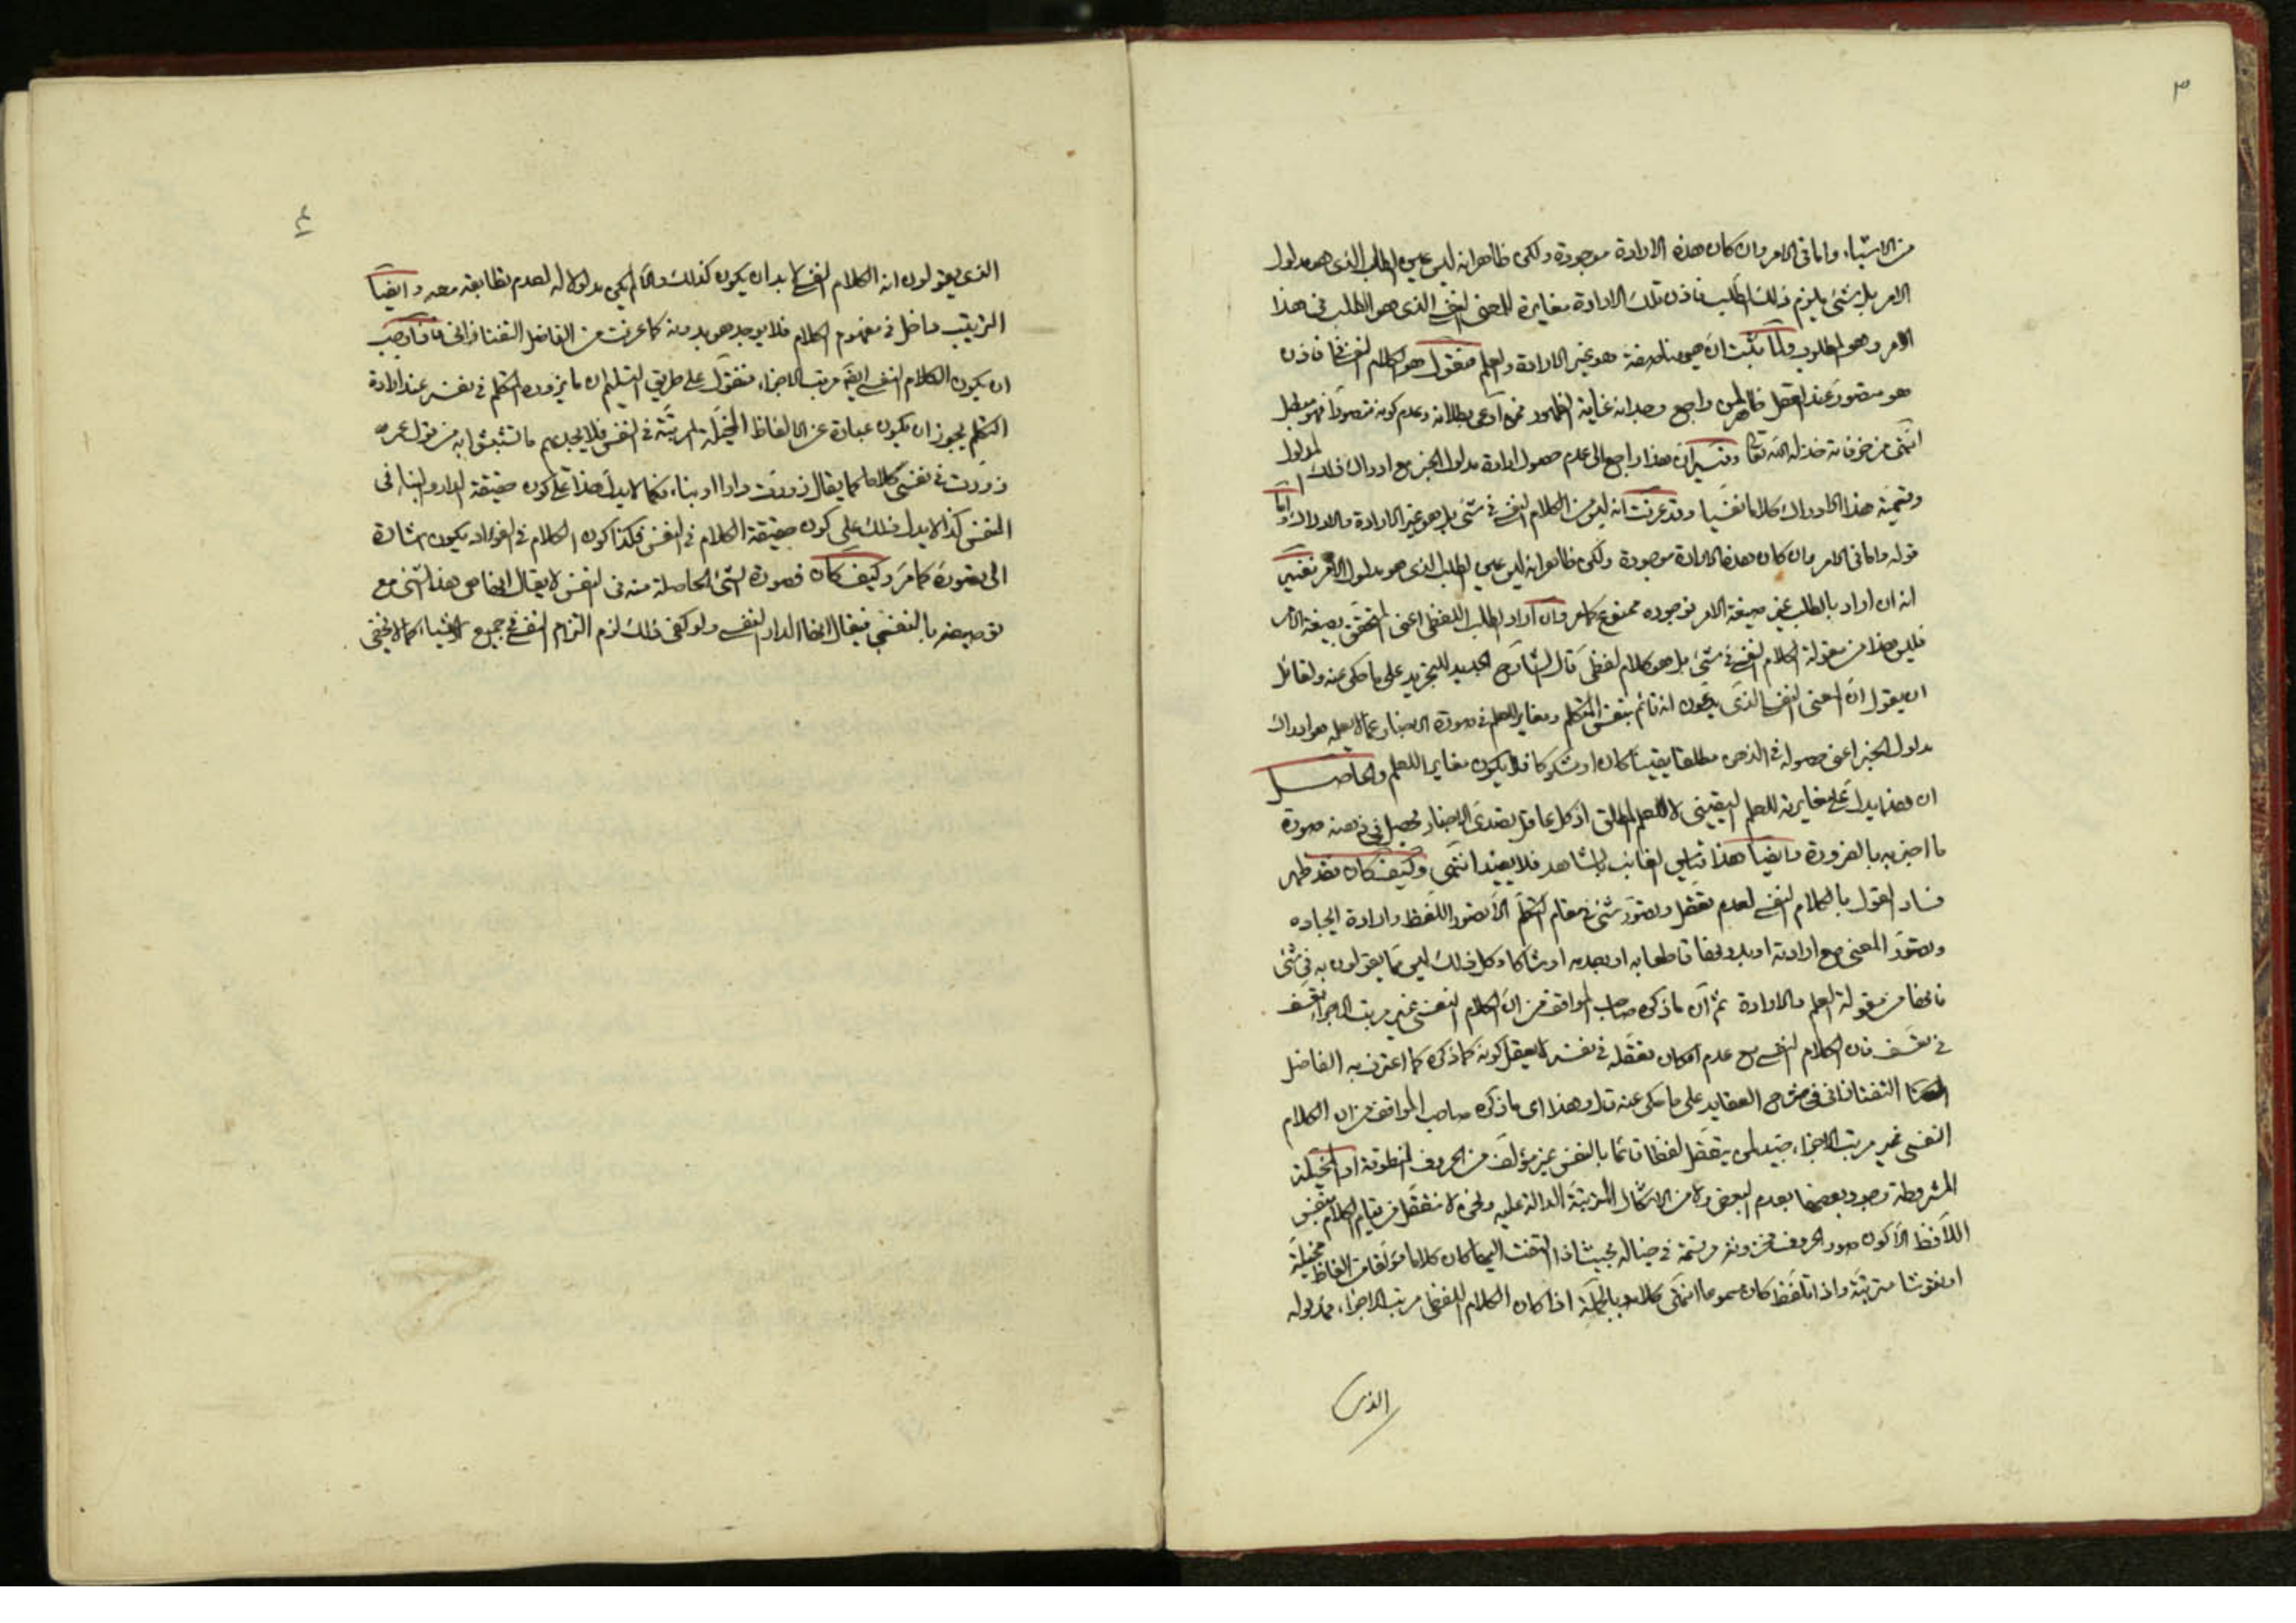 ٣
من الاشياء واما فى الامر وان كان هذه الارادة موجودة ولكن ظاهر انه ليس عين الطلب الذى هو مدلول
الامر بل شئ يلزم ذلك الطلب فاذن تلك الارادة مغايرة للمعنى النفسى الذى هو الطلب فى هذا
الامر وهو المطلوب ولما ثبت ان هيهنا صفة هو غير الارادة والعلم فنقول هو الكلام النفسى فاذن
هو متصور عند العقل ظاهر لمن راجع وجدانه غاية الظهور فمن ادعى بطلانه وعدم كونه متصورا فهو مبطل
انتهى من خرفاته خذله الله تعالى وفيه ان هذا راجع الى عدم حصول ارادة مدلول الخبر مع ادراك ذلك المدلول
وتسمية هذا الادراك كلاما نفسيا وقد عرفت انه ليس من الكلام النفسى فى شئ بل هو غير الارادة والادراك واما
قوله واما فى الامر وان كان هذه الارادة موجودة ولكن ظاهر انه ليس عين الطلب الذى هو مدلول الامر ففيه
انه ان اراد بالطلب غير صيغة الامر فوجوده ممنوع كما مر وان اراد الطلب اللفظى اعنى المتحقق بصيغة الامر
فليس هذا من مقولة الكلام النفسى فى شئ بل هو كلام لفظى قال الشارح الجديد للتجريد على ما حكى عنه ولقائل
ان يقول ان المعنى النفسى الذى يدعون انه قائم بنفس المتكلم ومغاير للعلم فى صورة الاخبار عما لا يعلمه هو ادراك
مدلول الخبر اعنى حصوله فى الذهن مطلقا يقينيا كان او مشكوكا فلا يكون مغايرا للعلم والحاصل
ان هذا يدل على مغايرته للعلم اليقينى لا للعلم المطلق اذ كل عاقل تصدى الاخبار يحصل فى ذهنه صورة
ما اخبر به بالضرورة وايضا هذا قياس الغائب بالشاهد فلا يفيد انتهى وكيف كان فقد ظهر
فساد القول بالكلام النفسى لعدم تعقل وتصور شئ فى مقام التكلم الا تصور اللفظ وارادة ايجاده
وتصور المعنى مع ارادته او بدونها قاطعا به او بعدمه او شاكا وكل ذلك ليس مما يقولون به فى شئ
فانها من مقولة العلم والارادة ثم ان ما ذكره صاحب المواقف من ان الكلام النفسى غير مرتب الاجزاء تعسف
فى تعسف فان الكلام النفسى مع عدم امكان تعقله فى نفسه لا يعقل كونه كما ذكره كما اعترف به الفاضل
التفتازانى فى شرح العقايد على ما حكى عنه قال وهذا اى ما ذكره صاحب المواقف من ان الكلام
النفسى غير مرتب الاجزاء جيد لمن يتعقل لفظا قائما بالنفس غير مؤلف من الحروف المنطوقة او المخيلة
المشروطة وجود بعضها بعدم البعض ولا من الاشكال المرتبة الدالة عليه ونحن لا نتعقل من قيام الكلام بنفس
اللافظ الا كون صور الحروف مخزونة مرتسمة فى خياله بحيث اذا التفت اليها كان كلاما مؤلفا من الفاظ مخيلة
او نقوشا مترتبة واذا تلفظ كان مسموعا انتهى كلامه وبالجملة اذا كان الكلام اللفظى مرتب الاجزاء فمدلوله
الذى
٤
الذى يقولون انه الكلام النفسى لا بد ان يكون كذلك والا لم يكن مدلولا له لعدم تطابقه معه وايضا
الترتيب داخل فى مفهوم الكلام فلا يوجد هو بدونه كما عرفت من الفاضل التفتازانى فاذا وجب
ان يكون الكلام النفسى ايضا مرتب الاجزاء فنقول على طريق التسليم ان ما يزوره المتكلم فى نفسه عند ارادة
التكلم يجوز ان يكون عبارة عن الالفاظ المخيلة المرتبة فى النفس فلا يجديهم ما تشبثوا به من قول عمر
زورت فى نفسى كلاما كما يقال زورت دارا او بناء فكما لا يدل هذا على كون حقيقة الدار والبناء فى
النفس كذا لا يدل ذلك على كون حقيقة الكلام فى النفس فكذا كون الكلام فى الفؤاد يكون اشارة
الى تصوره كما مر وكيف كان فصورة الشئ الحاصلة منه فى النفس لا يقال انها هى هذا الشئ مع
توصيفه بالنفسى فيقال انها الدار النفسى ولو كفى ذلك لزم التزام النفسى فى جميع الاشياء كما لا يخفى